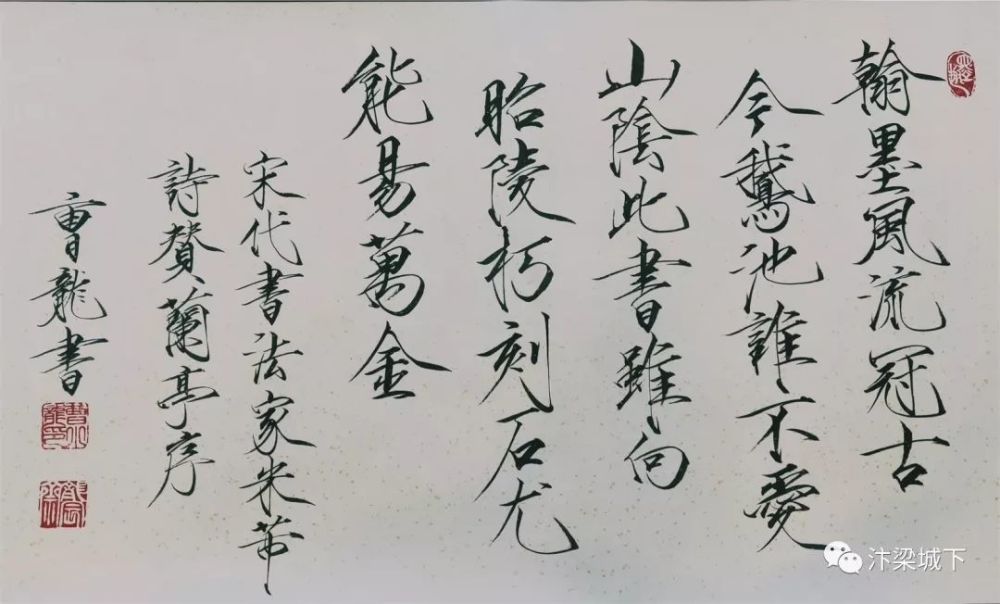 翰墨風流冠古
今鵞池誰不愛
山陰此書雖向
昭陵朽刻石尤
能易萬金
宋代書法家米芾
詩贊蘭亭序
曹龍書
汴梁城下